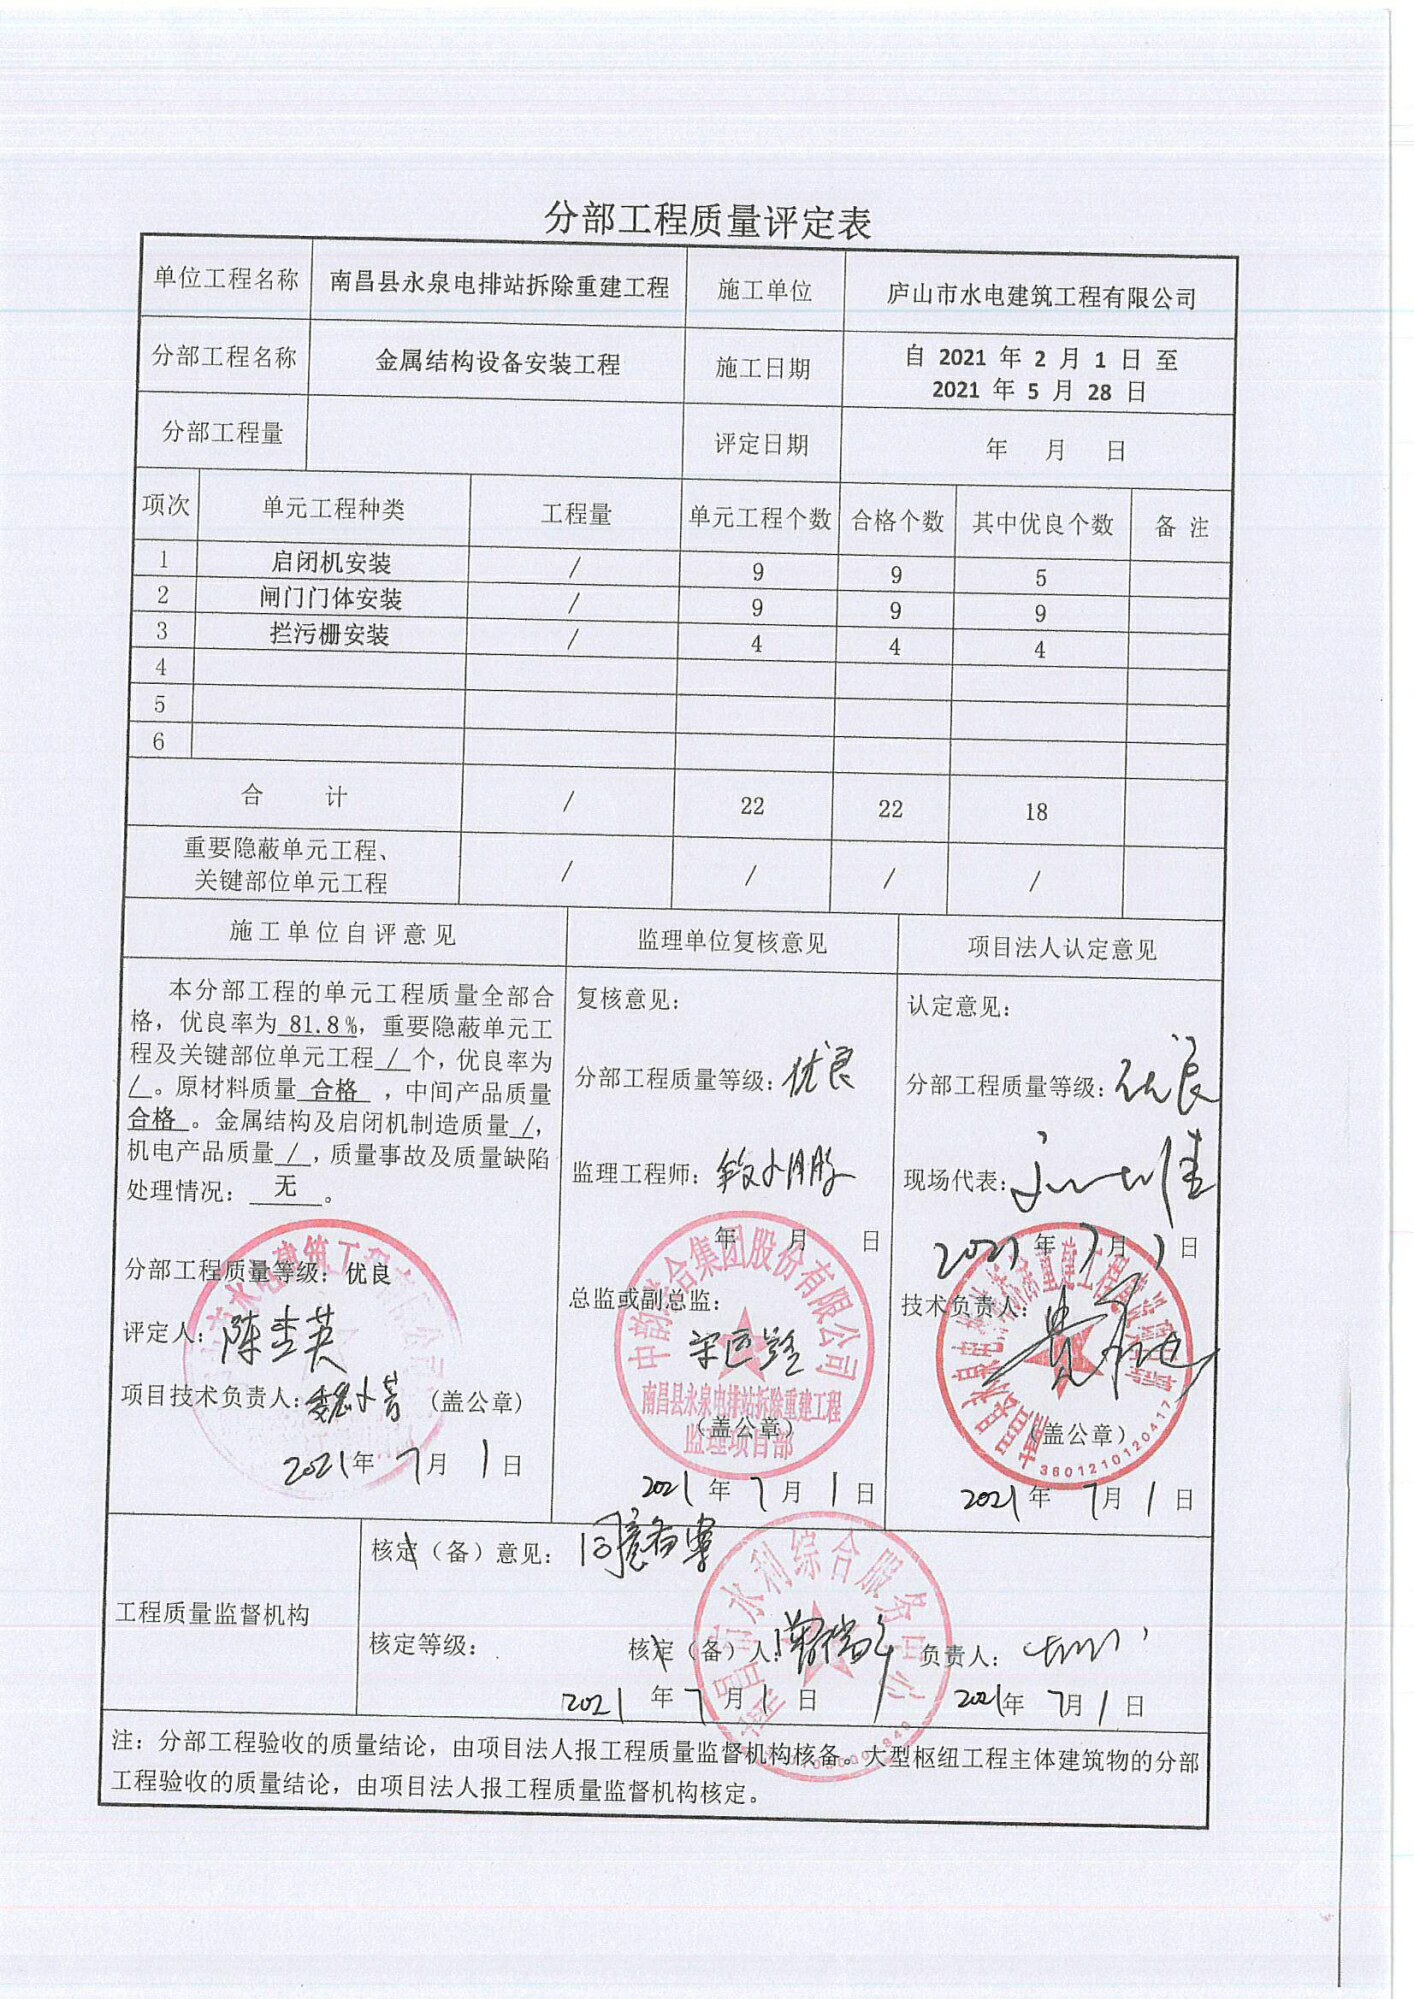 分部工程质量评定表
单位工程名称 南昌县永泉电排站拆除重建工程 施工单位 庐山市水电建筑工程有限公司
分部工程名称 金属结构设备安装工程 施工日期 自 2021 年 2 月 1 日 至
2021 年 5 月 28 日
分部工程量 评定日期 年 月 日
项次 单元工程种类 工程量 单元工程个数 合格个数 其中优良个数 备 注
1 启闭机安装 / 9 9 5
2 闸门门体安装 / 9 9 9
3 拦污栅安装 / 4 4 4
4
5
6
合 计 / 22 22 18
重要隐蔽单元工程、
关键部位单元工程 / / / /
施工单位自评意见 监理单位复核意见 项目法人认定意见
本分部工程的单元工程质量全部合
格，优良率为 81.8%，重要隐蔽单元工
程及关键部位单元工程 / 个，优良率为
/。原材料质量 合格 ，中间产品质量
合格 。金属结构及启闭机制造质量 /，
机电产品质量 /，质量事故及质量缺陷
处理情况： 无 。
分部工程质量等级：优良
评定人：
项目技术负责人： （盖公章）
2021年 7月 1日
复核意见：
分部工程质量等级：优良
监理工程师：
年 月 日
总监或副总监：
中韵综合集团股份有限公司
南昌县永泉电排站拆除重建工程
监理项目部
（盖公章）
2021 年 7月 1日
认定意见：
分部工程质量等级：优良
现场代表：
2021年 7月 1日
技术负责人：
（盖公章）
3601210120417
2021年 7月 1日
工程质量监督机构
核定（备）意见：同意备案
核定等级： 核定（备）人： 负责人：
水利综合服务中心
2021 年 7月 1日 2021年 7月 1日
注：分部工程验收的质量结论，由项目法人报工程质量监督机构核备。大型枢纽工程主体建筑物的分部
工程验收的质量结论，由项目法人报工程质量监督机构核定。